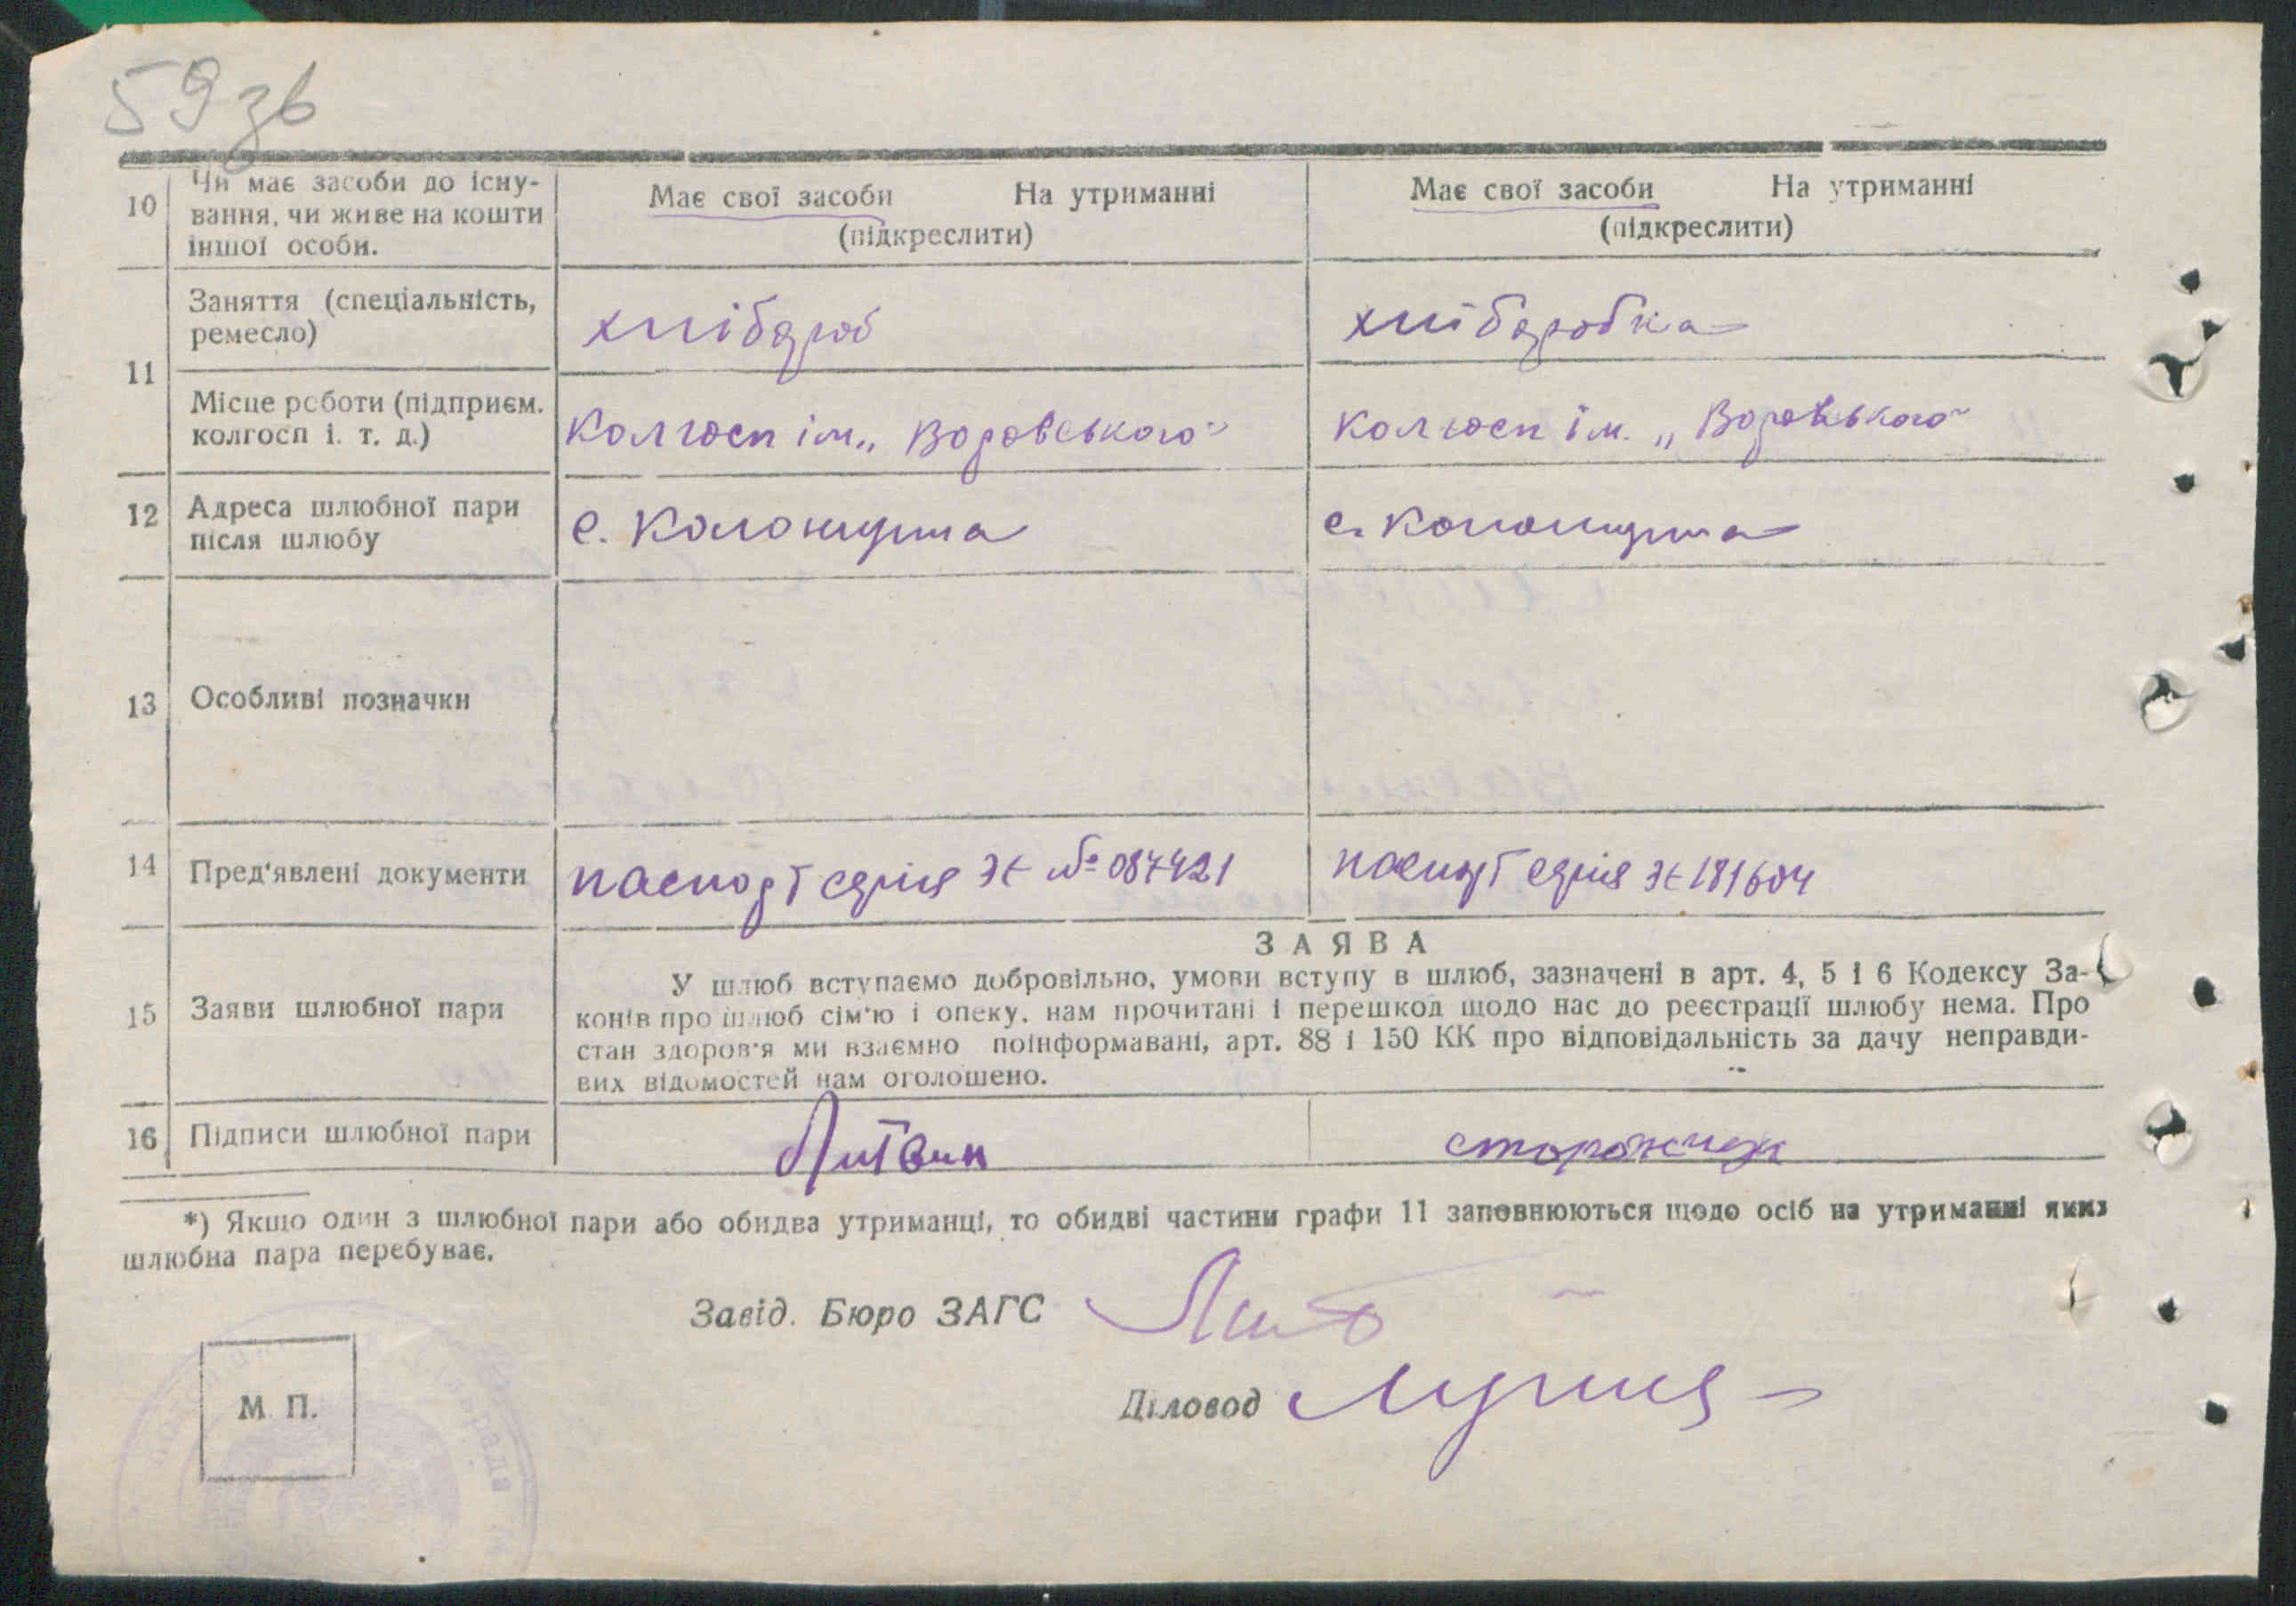 59 зв
10 Чи має засоби до існу-
вання, чи живе на кошти
іншої особи.
Має свої засоби На утриманні
(підкреслити)
Має свої засоби На утриманні
(підкреслити)
11 Заняття (спеціальність,
ремесло)
хлібороб
хліборобка
Місце роботи (підприєм.
колгосп і. т. д.)
Колгосп ім. „Воровського"
Колгосп ім. „Воровського"
12 Адреса шлюбної пари
після шлюбу
с. Колонщина
с. Колонщина
13 Особливі позначки
14 Пред'явлені документи
паспорт серія ЭЕ № 087421
паспорт серія ЭЕ 181604
15 Заяви шлюбної пари
ЗАЯВА
У шлюб вступаємо добровільно, умови вступу в шлюб, зазначені в арт. 4, 5 і 6 Кодексу За-
конів про шлюб сім'ю і опеку, нам прочитані і перешкод щодо нас до реєстрації шлюбу нема. Про
стан здоров'я ми взаємно поінформавані, арт. 88 і 150 КК про відповідальність за дачу неправди-
вих відомостей нам оголошено.
16 Підписи шлюбної пари
Литвин
*) Якщо один з шлюбної пари або обидва утриманці, то обидві частини графи 11 заповнюються щодо осіб на утриманні яких
шлюбна пара перебуває.
Завід. Бюро ЗАГС
Діловод
М. П.